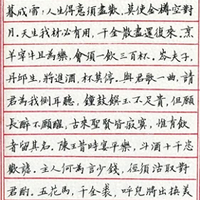 暮成雪。人生得意須盡歡，莫使金樽空對
月。天生我材必有用，千金散盡還復來。烹
羊宰牛且為樂，會須一飲三百杯。岑夫子，
丹邱生，將進酒，杯莫停。與君歌一曲，請
君為我側耳聽。鐘鼓饌玉不足貴，但願
長醉不願醒。古來聖賢皆寂寞，惟有飲
者留其名。陳王昔時宴平樂，斗酒十千恣
歡謔。主人何為言少錢，徑須沽取對
君酌。五花馬，千金裘，呼兒將出換美